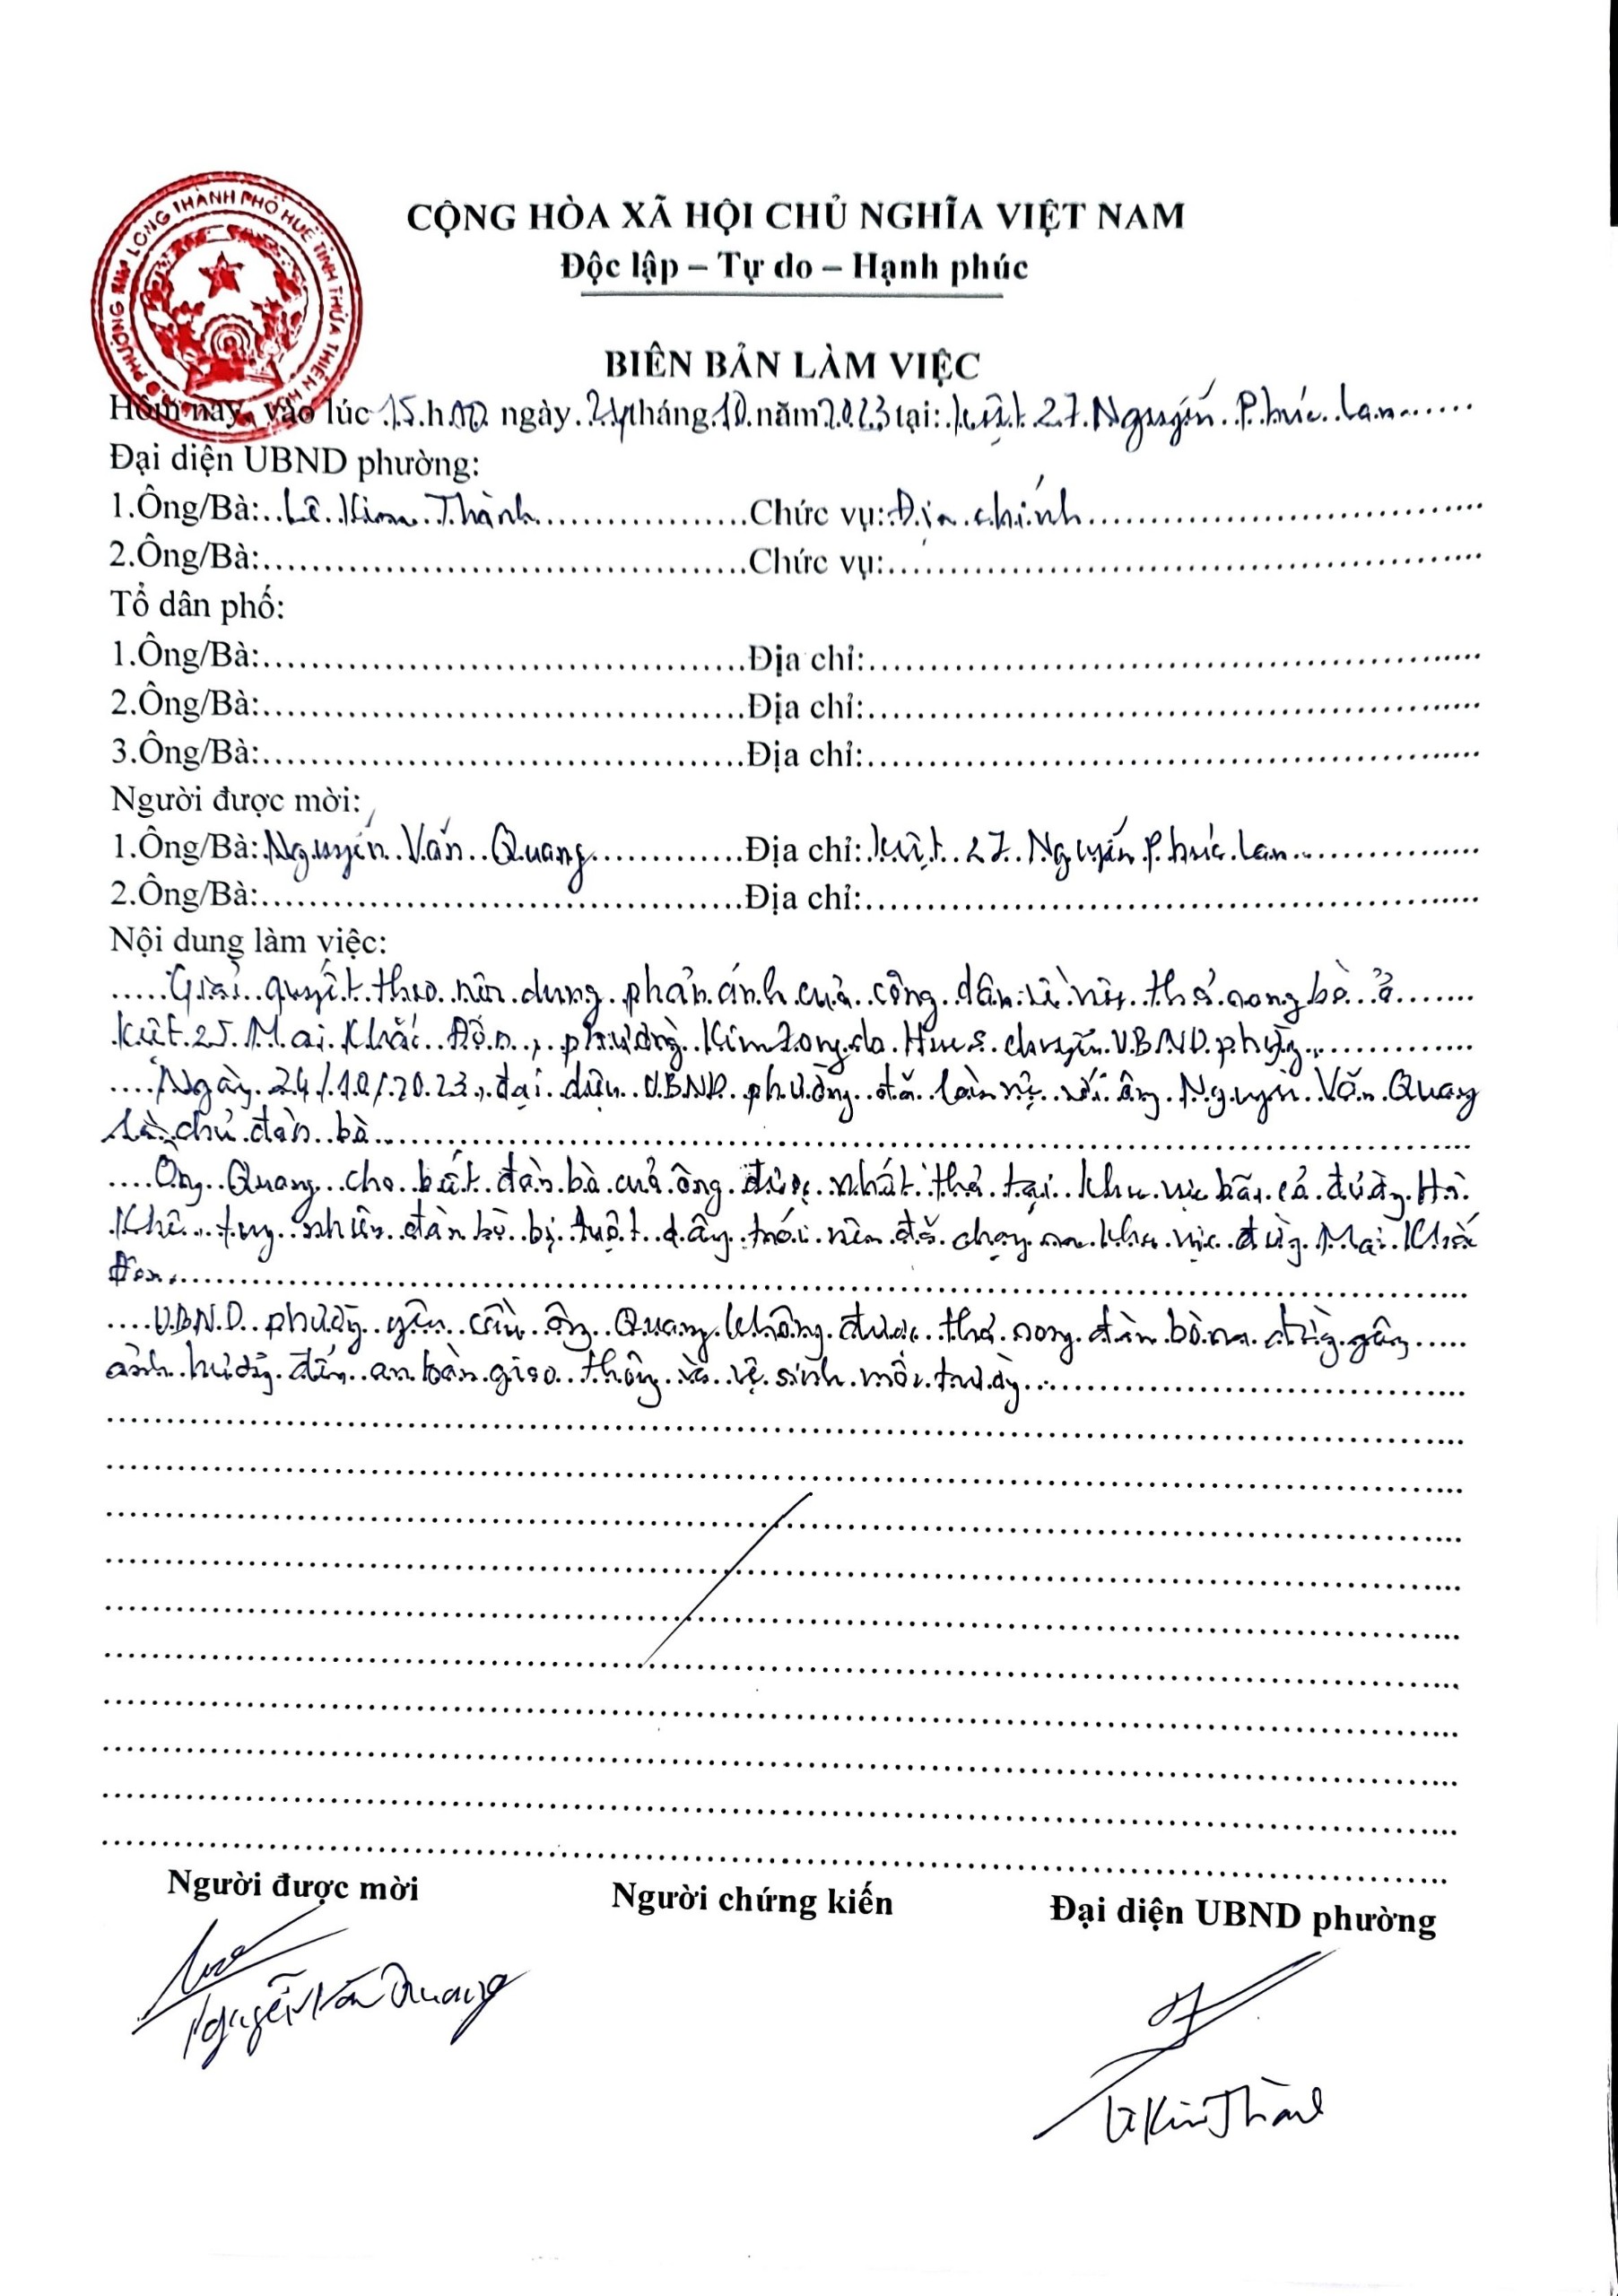 PHƯỜNG KIM LONG THÀNH PHỐ HUẾ TỈNH THỪA THIÊN HUẾ
CỘNG HÒA XÃ HỘI CHỦ NGHĨA VIỆT NAM
Độc lập – Tự do – Hạnh phúc
BIÊN BẢN LÀM VIỆC
Hôm nay, vào lúc 15 h 00 ngày 24 tháng 10 năm 2023 tại: kiệt 27 Nguyễn Phúc Lan
Đại diện UBND phường:
1.Ông/Bà: Lê Kim Thành Chức vụ: Địa chính
2.Ông/Bà: Chức vụ:
Tổ dân phố:
1.Ông/Bà: Địa chỉ:
2.Ông/Bà: Địa chỉ:
3.Ông/Bà: Địa chỉ:
Người được mời:
1.Ông/Bà: Nguyễn Văn Quang Địa chỉ: kiệt 27 Nguyễn Phúc Lan
2.Ông/Bà: Địa chỉ:
Nội dung làm việc:
Giải quyết theo nội dung phản ánh của công dân về việc thả rong bò ở
kiệt 25 Mai Khắc Đôn, phường Kim Long do Hue S chuyển UBND phường.
Ngày 24/10/2023, đại diện UBND phường đã làm việc với ông Nguyễn Văn Quang
là chủ đàn bò
Ông Quang cho biết đàn bò của ông được nhốt thả tại khu vực bãi cỏ đường
Khê tuy nhiên đàn bò bị tuột dây trói nên đã chạy ra khu vực đường Mai Khắc
Đôn.
UBND phường yêu cầu ông Quang không được thả rong đàn bò ra đường gây
ảnh hưởng đến an toàn giao thông và vệ sinh môi trường.
Người được mời Người chứng kiến Đại diện UBND phường
Nguyễn Văn Quang
Lê Kim Thành